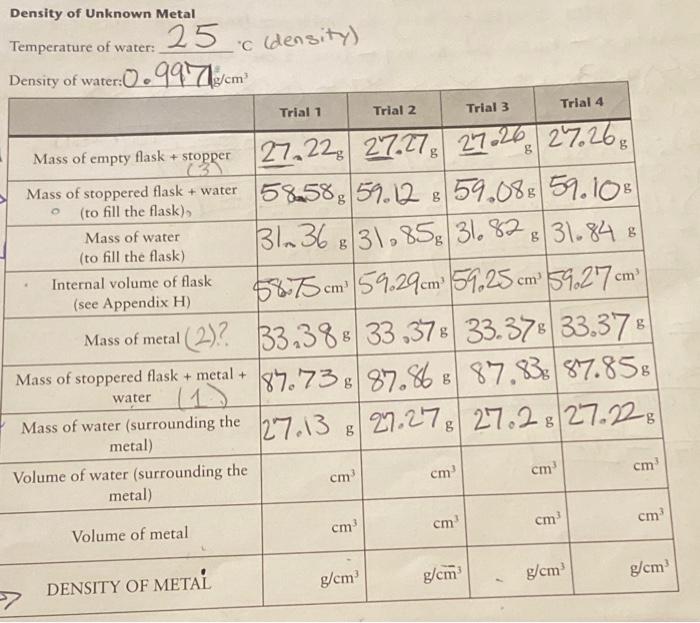 Density of Unknown Metal
Temperature of water: 25 °C (density)
Density of water: 0.9971 g/cm³
Trial 1 Trial 2 Trial 3 Trial 4
Mass of empty flask + stopper (3) 27.22 g 27.27 g 27.26 g 27.26 g
Mass of stoppered flask + water (to fill the flask) 58.58 g 59.12 g 59.08 g 59.10 g
Mass of water (to fill the flask) 31.36 g 31.85 g 31.82 g 31.84 g
Internal volume of flask (see Appendix H) 58.75 cm³ 59.29 cm³ 59.25 cm³ 59.27 cm³
Mass of metal (2)? 33.38 g 33.37 g 33.37 g 33.37 g
Mass of stoppered flask + metal + water (1) 87.73 g 87.86 g 87.83 g 87.85 g
Mass of water (surrounding the metal) 27.13 g 27.27 g 27.2 g 27.22 g
Volume of water (surrounding the metal) cm³ cm³ cm³ cm³
Volume of metal cm³ cm³ cm³ cm³
DENSITY OF METAL g/cm³ g/cm³ g/cm³ g/cm³